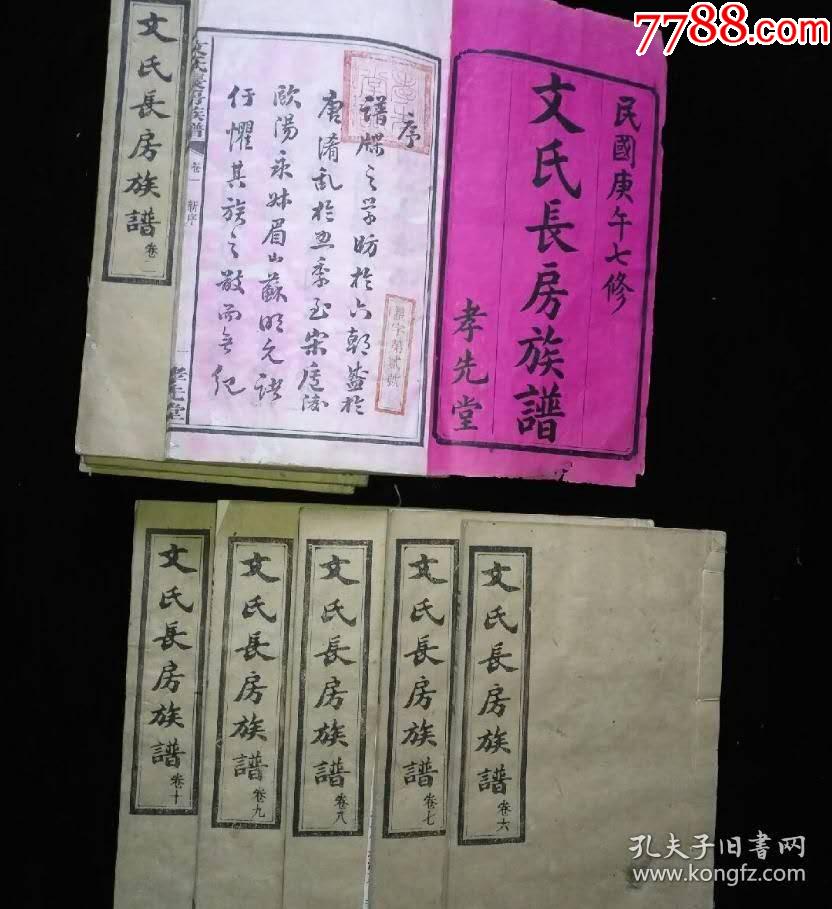 7788.com
民國庚午七修
文氏長房族譜
孝先堂
序
譜牒之學昉於六朝盛於
唐淆亂於五季至宋廬陵
歐陽永叔眉山蘇明允諸
仔懼其族之散而無紀
羅字第貳號
文氏長房族譜 卷一 新序 一 孝先堂
文氏長房族譜 卷二
文氏長房族譜 卷六
文氏長房族譜 卷七
文氏長房族譜 卷八
文氏長房族譜 卷九
文氏長房族譜 卷十
孔夫子旧書网
www.kongfz.com